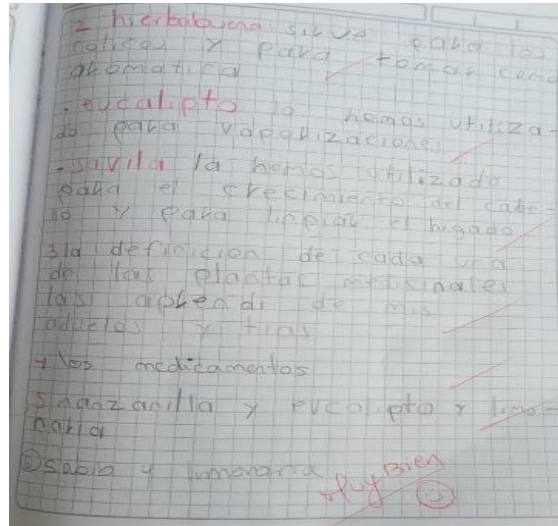 2 hierbabuena sirve para los
colicos y para tomar como
aromatica
.eucalipto lo hemos utiliza-
do para vaporizaciones
-savila la hemos utilizado
para el crecimiento del cabe-
llo y para limpiar el higado
3 la definicion de cada una
de las plantas medisinales
las aprendi de mis
abuelos y tias
4 los medicamentos
5 manzanilla y eucalipto y limo-
naria
6 sabia y limonaria
Muy Bien